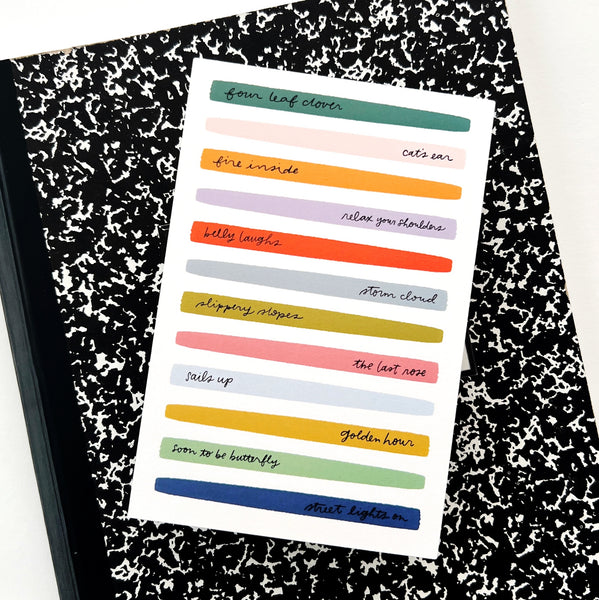 four leaf clover
cat's ear
fire inside
relax your shoulders
belly laughs
storm cloud
slippery slopes
the last rose
sails up
golden hour
soon to be butterfly
street lights on